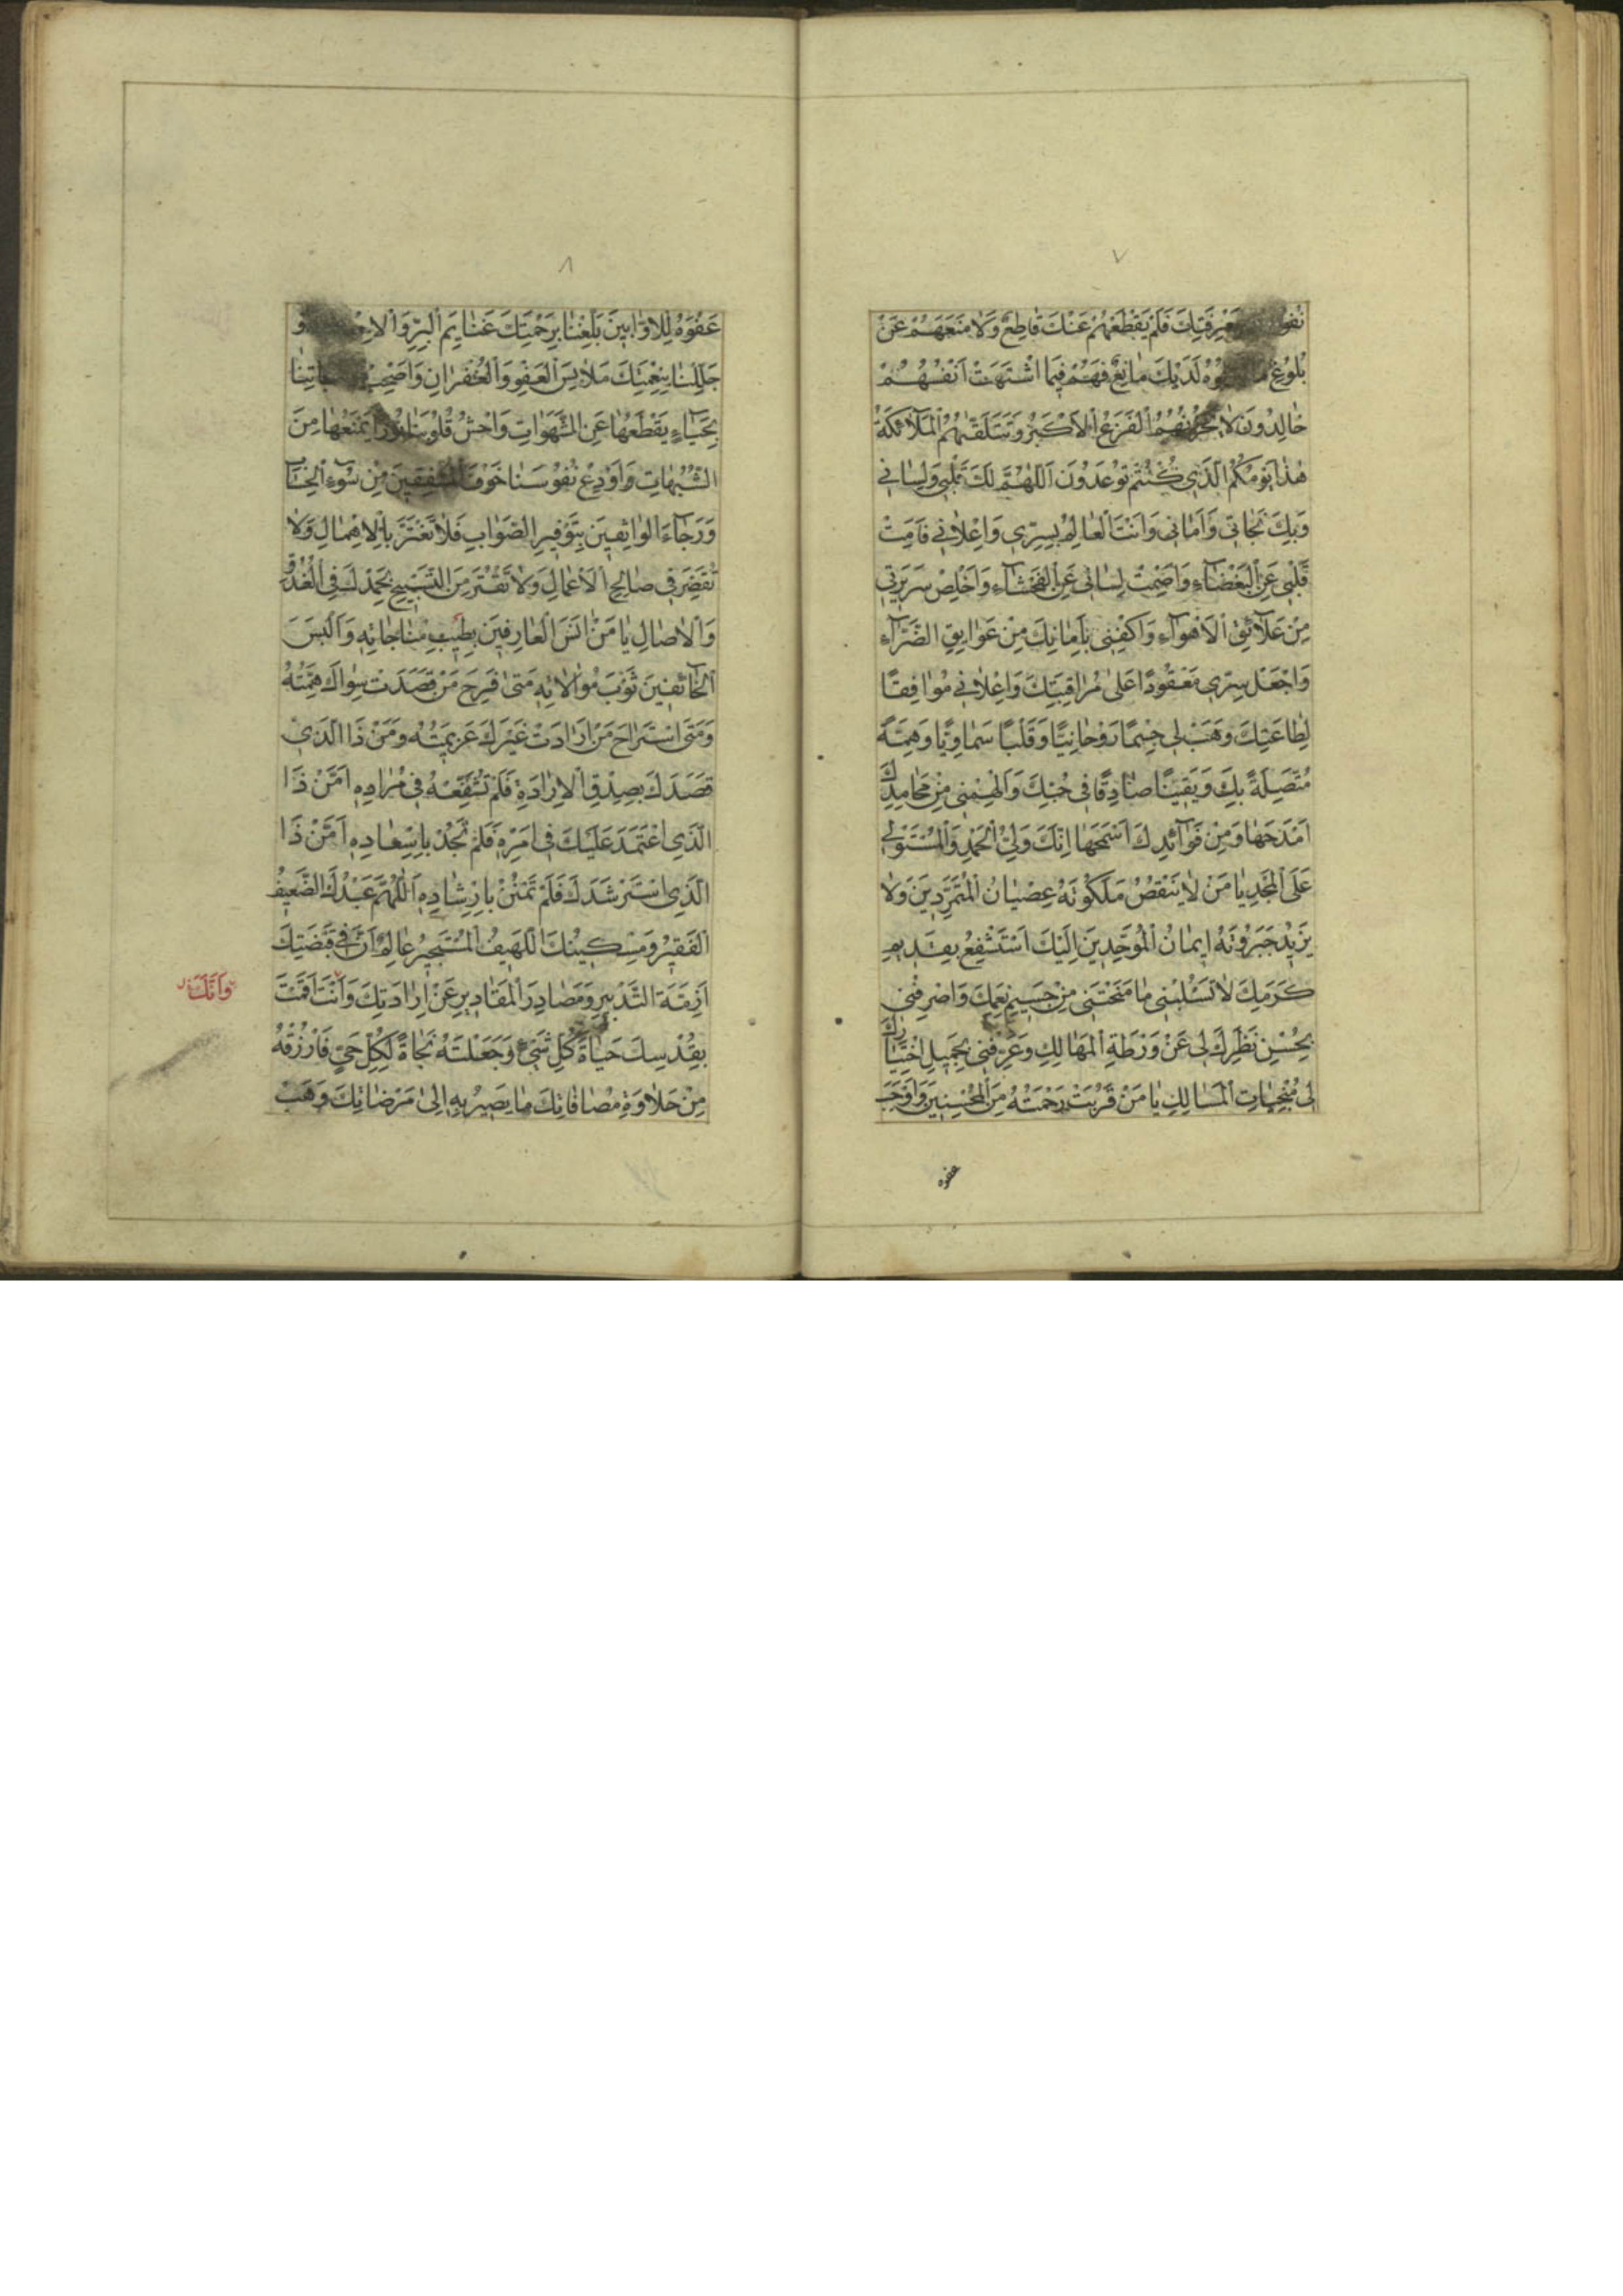 ٧
مَعْرِفَتِكَ فَلَمْ يَقْطَعْهُمْ عَنْكَ قَاطِعٌ وَلَا مَنَعَهُمْ عَنْ
بُلُوغِ لَدَيْكَ مَانِعٌ فَهُمْ فِيمَا اشْتَهَتْ اَنْفُسُهُمْ
خَالِدُونَ لَا يَحْزُنُهُمُ الْفَزَعُ الْاَكْبَرُ وَتَتَلَقَّاهُمُ الْمَلَآئِكَةُ
هٰذَا يَوْمُكُمُ الَّذِي كُنْتُمْ تُوعَدُونَ اَللّٰهُمَّ لَكَ قَلْبِي وَلِسَانِي
وَبِكَ نَجَاتِي وَاَمَانِي وَاَنْتَ الْعَالِمُ بِسِرِّي وَاِعْلَانِي فَاَمِتْ
قَلْبِي عَنِ الْبَغْضَآءِ وَاَصْمِتْ لِسَانِي عَنِ الْفَحْشَآءِ وَاَخْلِصْ سَرِيرَتِي
مِنْ عَلَآئِقِ الْاَهْوَآءِ وَاكْفِنِي بِاَمَانِكَ مِنْ عَوَايِقِ الضَّرَّآءِ
وَاجْعَلْ سِرِّي مَعْقُودًا عَلٰى مُرَاقَبَتِكَ وَاِعْلَانِي مُوَافِقًا
لِطَاعَتِكَ وَهَبْ لِي جِسْمًا رَوْحَانِيًّا وَقَلْبًا سَمَاوِيًّا وَهِمَّةً
مُتَّصِلَةً بِكَ وَيَقِينًا صَادِقًا فِي حُبِّكَ وَاَلْهِمْنِي مِنْ مَحَامِدِكَ
اَمْدَحَهَا وَمِنْ فَوَآئِدِكَ اَسْمَحَهَا اِنَّكَ وَلِيُّ الْحَمْدِ وَالْمُسْتَوْلِي
عَلَى الْمَجْدِ يَا مَنْ لَا يَنْقُصُ مَلَكُوتَهُ عِصْيَانُ الْمُتَمَرِّدِينَ وَلَا
يَزِيدُ جَبَرُوتَهُ اِيمَانُ الْمُوَحِّدِينَ اِلَيْكَ اَسْتَشْفِعُ بِقَدِيمِ
كَرَمِكَ لَا تَسْلُبْنِي مَا مَنَحْتَنِي مِنْ جَسِيمِ نِعَمِكَ وَاصْرِفْنِي
بِحُسْنِ نَظَرِكَ لِي عَنْ وَرْطَةِ الْمَهَالِكِ وَعَرِّفْنِي بِجَمِيلِ اخْتِيَارِكَ
لِي مُنْجِيَاتِ الْمَسَالِكِ يَا مَنْ قَرُبَتْ رَحْمَتُهُ مِنَ الْمُحْسِنِينَ وَاَوْجَبَ
عفوه
٨
عَفْوَهُ لِلْاَوَّابِينَ بَلِّغْنَا بِرَحْمَتِكَ غَنَايِمَ الْبِرِّ وَ
جَلِّلْنَا بِنِعْمَتِكَ مَلَابِسَ الْعَفْوِ وَالْغُفْرَانِ وَاَصْحِبْ
بِحَيَآءٍ يَقْطَعُهَا عَنِ الشَّهَوَاتِ وَاحْشُ قُلُوبَنَا نُورًا يَمْنَعُهَا مِنَ
الشُّبُهَاتِ وَاَوْدِعْ نُفُوسَنَا خَوْفَ الْمُشْفِقِينَ مِنْ سُوءِ الْحِسَابِ
وَرَجَآءَ الْوَاثِقِينَ بِتَوْفِيرِ الصَّوَابِ فَلَا نَغْتَرَّ بِالْاِهْمَالِ وَلَا
نُقَصِّرَ فِي صَالِحِ الْاَعْمَالِ وَلَا نَفْتُرَ مِنَ التَّسْبِيحِ بِحَمْدِكَ فِي الْغُدُوِّ
وَالْاٰصَالِ يَا مَنْ اٰنَسَ الْعَارِفِينَ بِطِيبِ مُنَاجَاتِهِ وَاَلْبَسَ
الْخَآئِفِينَ ثَوْبَ مُوَالَاتِهِ مَتٰى فَرِحَ مَنْ قَصَدَتْ سِوَاكَ هِمَّتُهُ
وَمَتَى اسْتَرَاحَ مَنْ اَرَادَتْ غَيْرَكَ عَزِيمَتُهُ وَمَنْ ذَا الَّذِي
قَصَدَكَ بِصِدْقِ الْاِرَادَةِ فَلَمْ تُشَفِّعْهُ فِي مُرَادِهِ اَمَّنْ ذَا
الَّذِي اعْتَمَدَ عَلَيْكَ فِي اَمْرِهِ فَلَمْ تَجُدْ بِاِسْعَادِهِ اَمَّنْ ذَا
الَّذِي اسْتَرْشَدَكَ فَلَمْ تَمْنُنْ بِاِرْشَادِهِ اَللّٰهُمَّ عَبْدُكَ الضَّعِيفُ
الْفَقِيرُ وَمِسْكِينُكَ اللَّهِيفُ الْمُسْتَجِيرُ عَالِمٌ اَنَّ فِي قَبْضَتِكَ
اَزِمَّةَ التَّدْبِيرِ وَمَصَادِرَ الْمَقَادِيرِ عَنْ اِرَادَتِكَ وَاَنْتَ اَقَمْتَ
وَاَنَّكَ
بِقُدْسِكَ حَيٰاةَ كُلِّ شَيْءٍ وَجَعَلْتَهُ نَجَاةً لِكُلِّ حَيٍّ فَارْزُقْهُ
مِنْ حَلَاوَةِ مُصَافَاتِكَ مَا يَصِيرُ بِهِ اِلٰى مَرْضَاتِكَ وَهَبْ